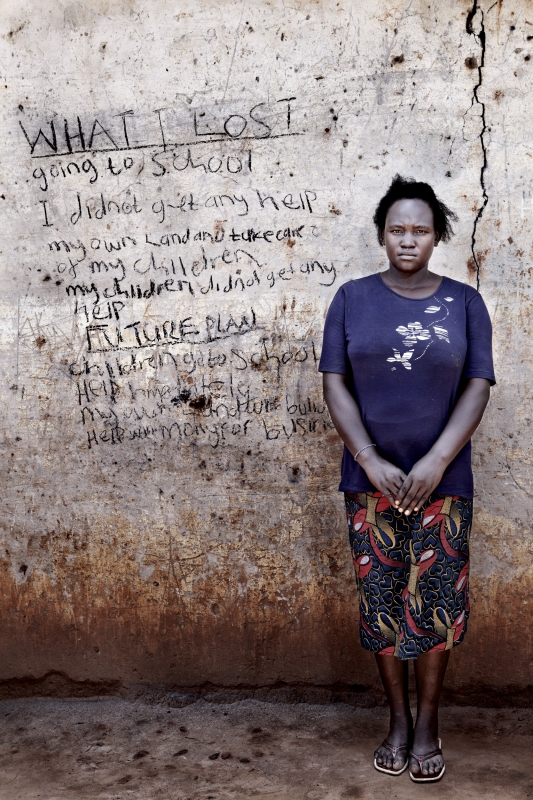 WHAT I LOST
going to school
I didnot get any help
my own Land and take care
of my chilldren
my chlidren didnot get any
help
FUTURE PLAN
children go to school
HelP
my own
Help with money for busin